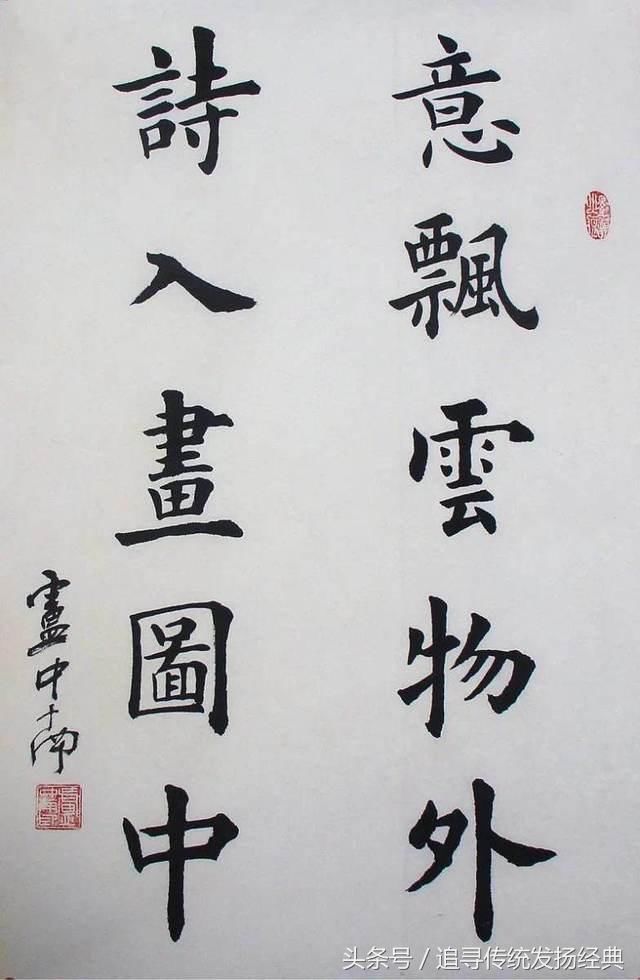 意飄雲物外
詩入畫圖中
盧中南
头条号 / 追寻传统发扬经典